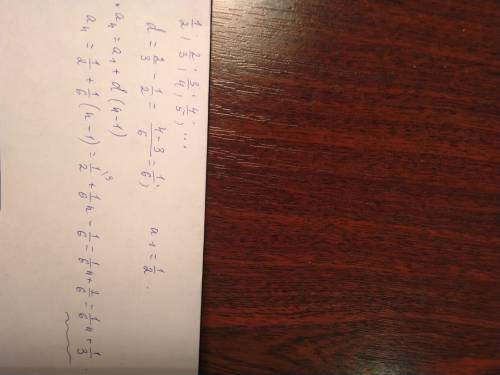 1/2; 2/3; 3/4; 4/5; ...
d = 2/3 - 1/2 = (4-3)/6 = 1/6; a₁ = 1/2.
• aₙ = a₁ + d(n-1)
aₙ = 1/2 + 1/6(n-1) = 1/2 + 1/6n - 1/6 = 1/6n + 2/6 = 1/6n + 1/3.